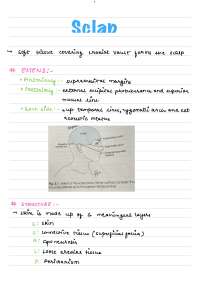 Scalp
→ soft tissue covering cranial vault forms the scalp
* EXTENT:-
• Anteriorly - supraorbital margins
• Posteriorly - external occipital protuberance and superior
nuchal line
• Each side - sup temporal line, zygomatic arch and ext
acoustic meatus
* STRUCTURE:-
→ skin is made up of 5 meaningful layers
S: skin
C: connective tissue (superficial fascia)
A: Aponeurosis
L: Loose areolar tissue
P: Pericranium